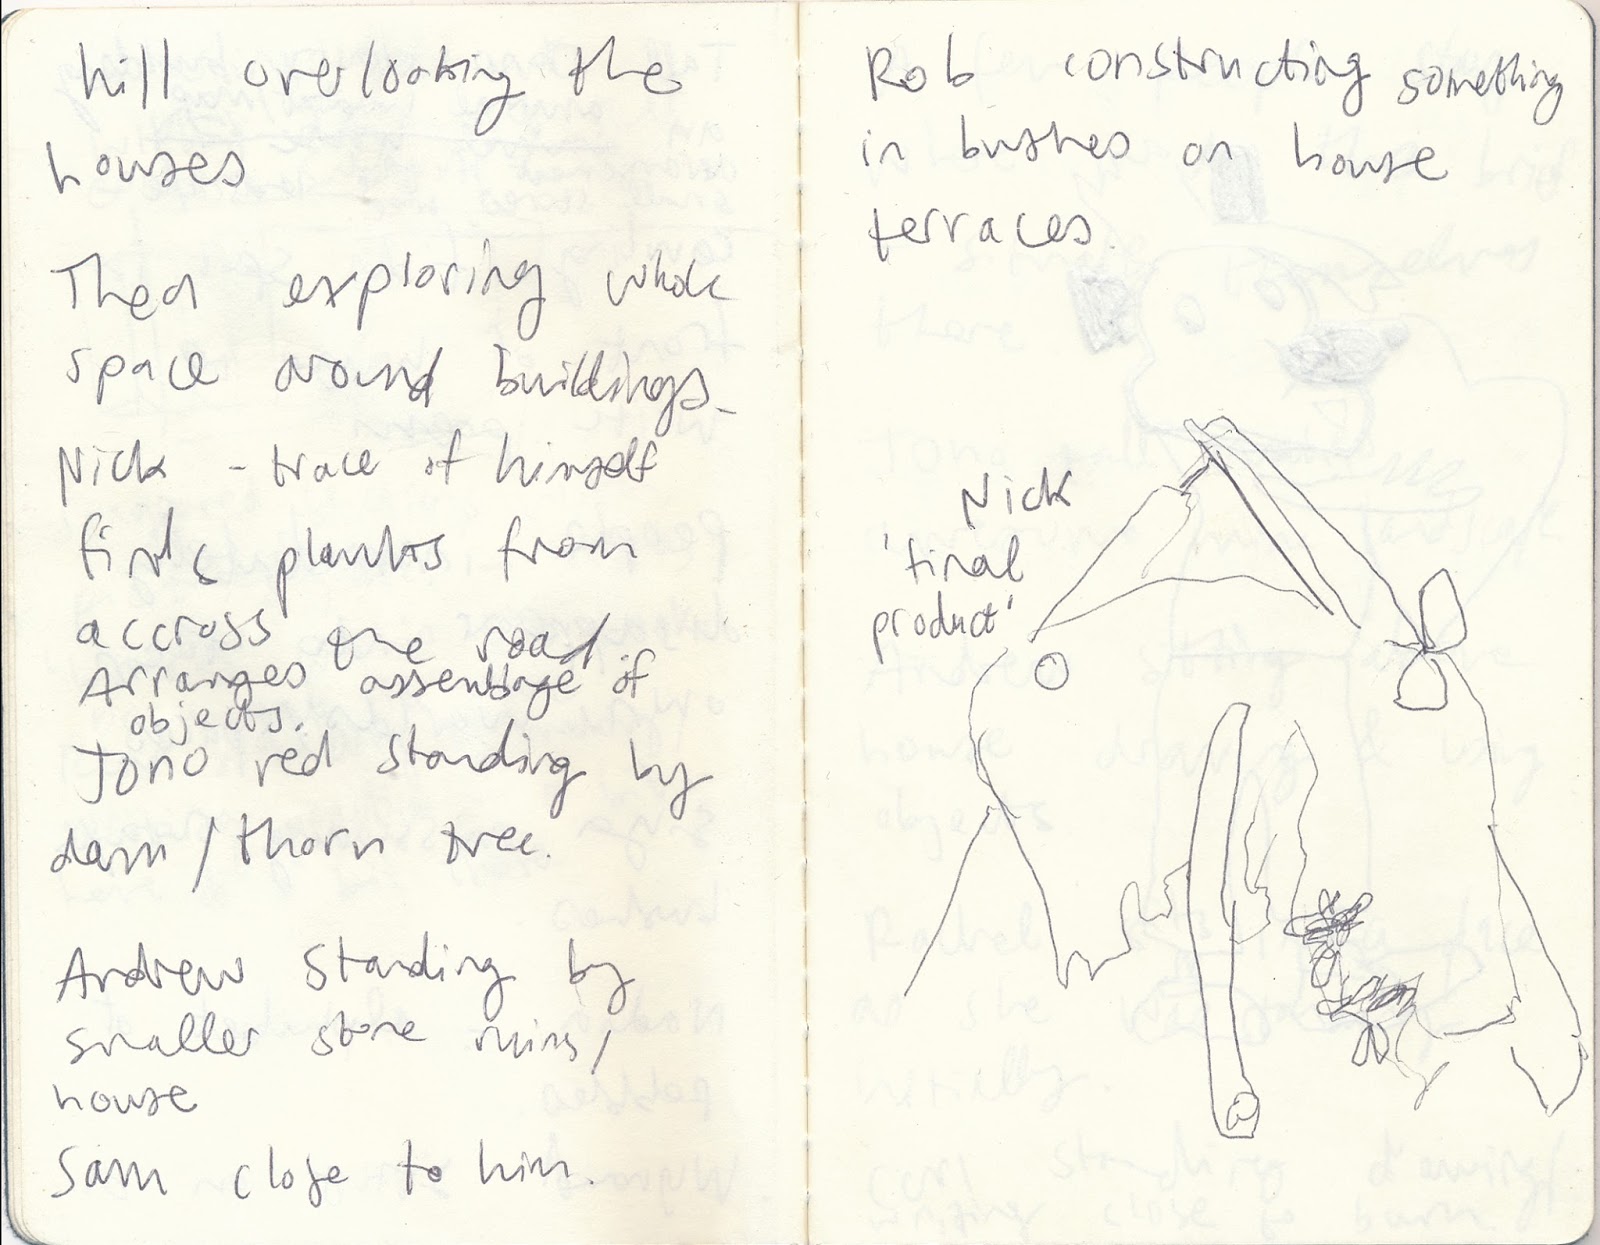 hill overlooking the
houses
Then exploring whole
space around buildings.
Nick - trace of himself
finds plants from
accross the road.
Arranges assemblage of
objects.
Jono red standing by
dam / thorn tree.
Andrew standing by
smaller stone ruins /
house
Sam close to him.
Rob constructing something
in bushes on house
terraces.
Nick
'final
product'